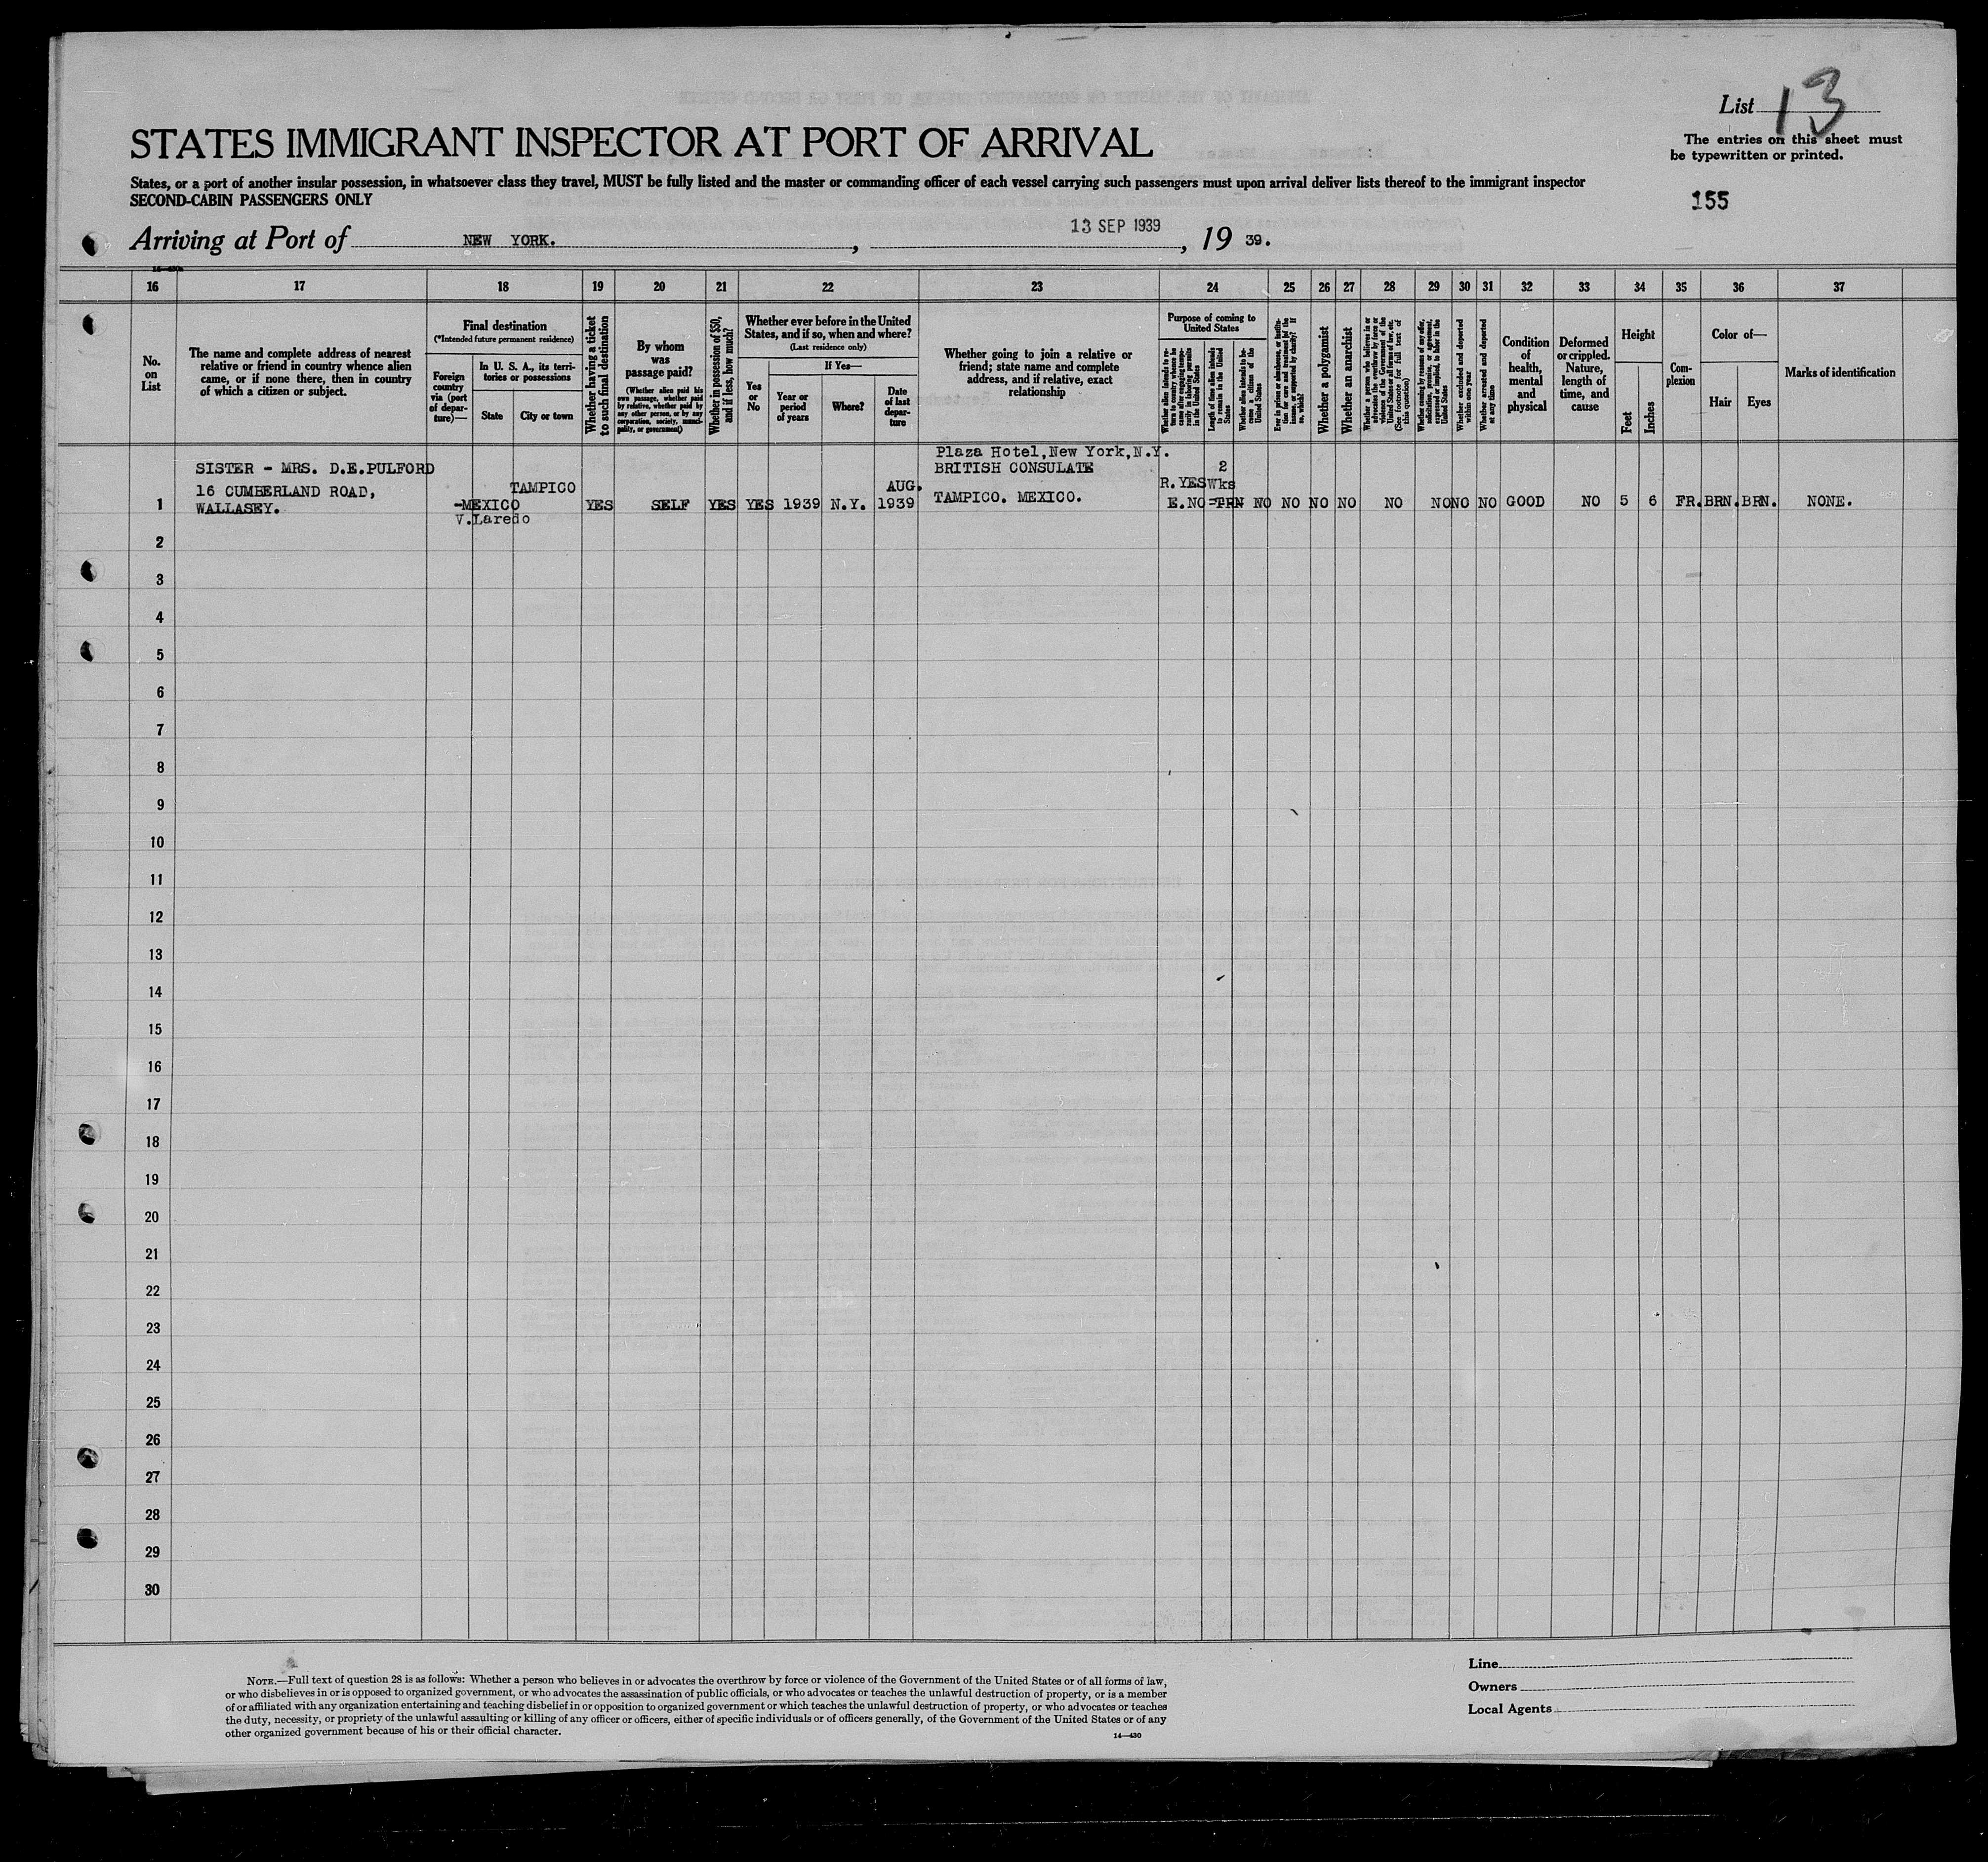 List 13
STATES IMMIGRANT INSPECTOR AT PORT OF ARRIVAL
The entries on this sheet must
be typewritten or printed.
States, or a port of another insular possession, in whatsoever class they travel, MUST be fully listed and the master or commanding officer of each vessel carrying such passengers must upon arrival deliver lists thereof to the immigrant inspector
SECOND-CABIN PASSENGERS ONLY
155
Arriving at Port of NEW YORK. , 13 SEP 1939 , 19 39.
16 17 18 19 20 21 22 23 24 25 26 27 28 29 30 31 32 33 34 35 36 37
No.
on
List
The name and complete address of nearest
relative or friend in country whence alien
came, or if none there, then in country
of which a citizen or subject.
Final destination
(*Intended future permanent residence)
Foreign
country
via (port
of depar-
ture)—
In U. S. A., its terri-
tories or possessions
State
City or town
Whether having a ticket
to such final destination
By whom
was
passage paid?
(Whether alien paid his
own passage, whether paid
by relative, whether paid by
any other person, or by any
corporation, society, munici-
pality, or government)
Whether in possession of $50,
and if less, how much?
Whether ever before in the United
States, and if so, when and where?
(Last residence only)
Yes
or
No
If Yes—
Year or
period
of years
Where?
Date
of last
depar-
ture
Whether going to join a relative or
friend; state name and complete
address, and if relative, exact
relationship
Purpose of coming to
United States
Whether alien intends to re-
turn to country whence he
came after engaging tempo-
rarily in laboring pursuits
in the United States
Length of time alien intends
to remain in the United
States
Whether alien intends to be-
come a citizen of the
United States
Ever in prison or almshouse, or institu-
tion for care and treatment of the
insane, or supported by charity? If
so, which?
Whether a polygamist
Whether an anarchist
Whether a person who believes in or
advocates the overthrow by force or
violence of the Government of the
United States or all forms of law, etc.
(See footnote for full text of
this question)
Whether coming by reason of any offer,
solicitation, promise, or agreement,
expressed or implied, to labor in the
United States
Whether excluded and deported
within one year
Whether arrested and deported
at any time
Condition
of
health,
mental
and
physical
Deformed
or crippled.
Nature,
length of
time, and
cause
Height
Feet
Inches
Com-
plexion
Color of—
Hair
Eyes
Marks of identification
Plaza Hotel,New York,N.Y.
SISTER - MRS. D.E.PULFORD BRITISH CONSULATE 2
16 CUMBERLAND ROAD, TAMPICO AUG. R.YES Wks
1 WALLASEY. -MEXICO YES SELF YES YES 1939 N.Y. 1939 TAMPICO. MEXICO. E.NO -TRN NO NO NO NO NO NO NO NO GOOD NO 5 6 FR. BRN. BRN. NONE.
V.Laredo
2
3
4
5
6
7
8
9
10
11
12
13
14
15
16
17
18
19
20
21
22
23
24
25
26
27
28
29
30
NOTE.—Full text of question 28 is as follows: Whether a person who believes in or advocates the overthrow by force or violence of the Government of the United States or of all forms of law,
or who disbelieves in or is opposed to organized government, or who advocates the assassination of public officials, or who advocates or teaches the unlawful destruction of property, or is a member
of or affiliated with any organization entertaining and teaching disbelief in or opposition to organized government or which teaches the unlawful destruction of property, or who advocates or teaches
the duty, necessity, or propriety of the unlawful assaulting or killing of any officer or officers, either of specific individuals or of officers generally, of the Government of the United States or of any
other organized government because of his or their official character.
14—430
Line
Owners
Local Agents